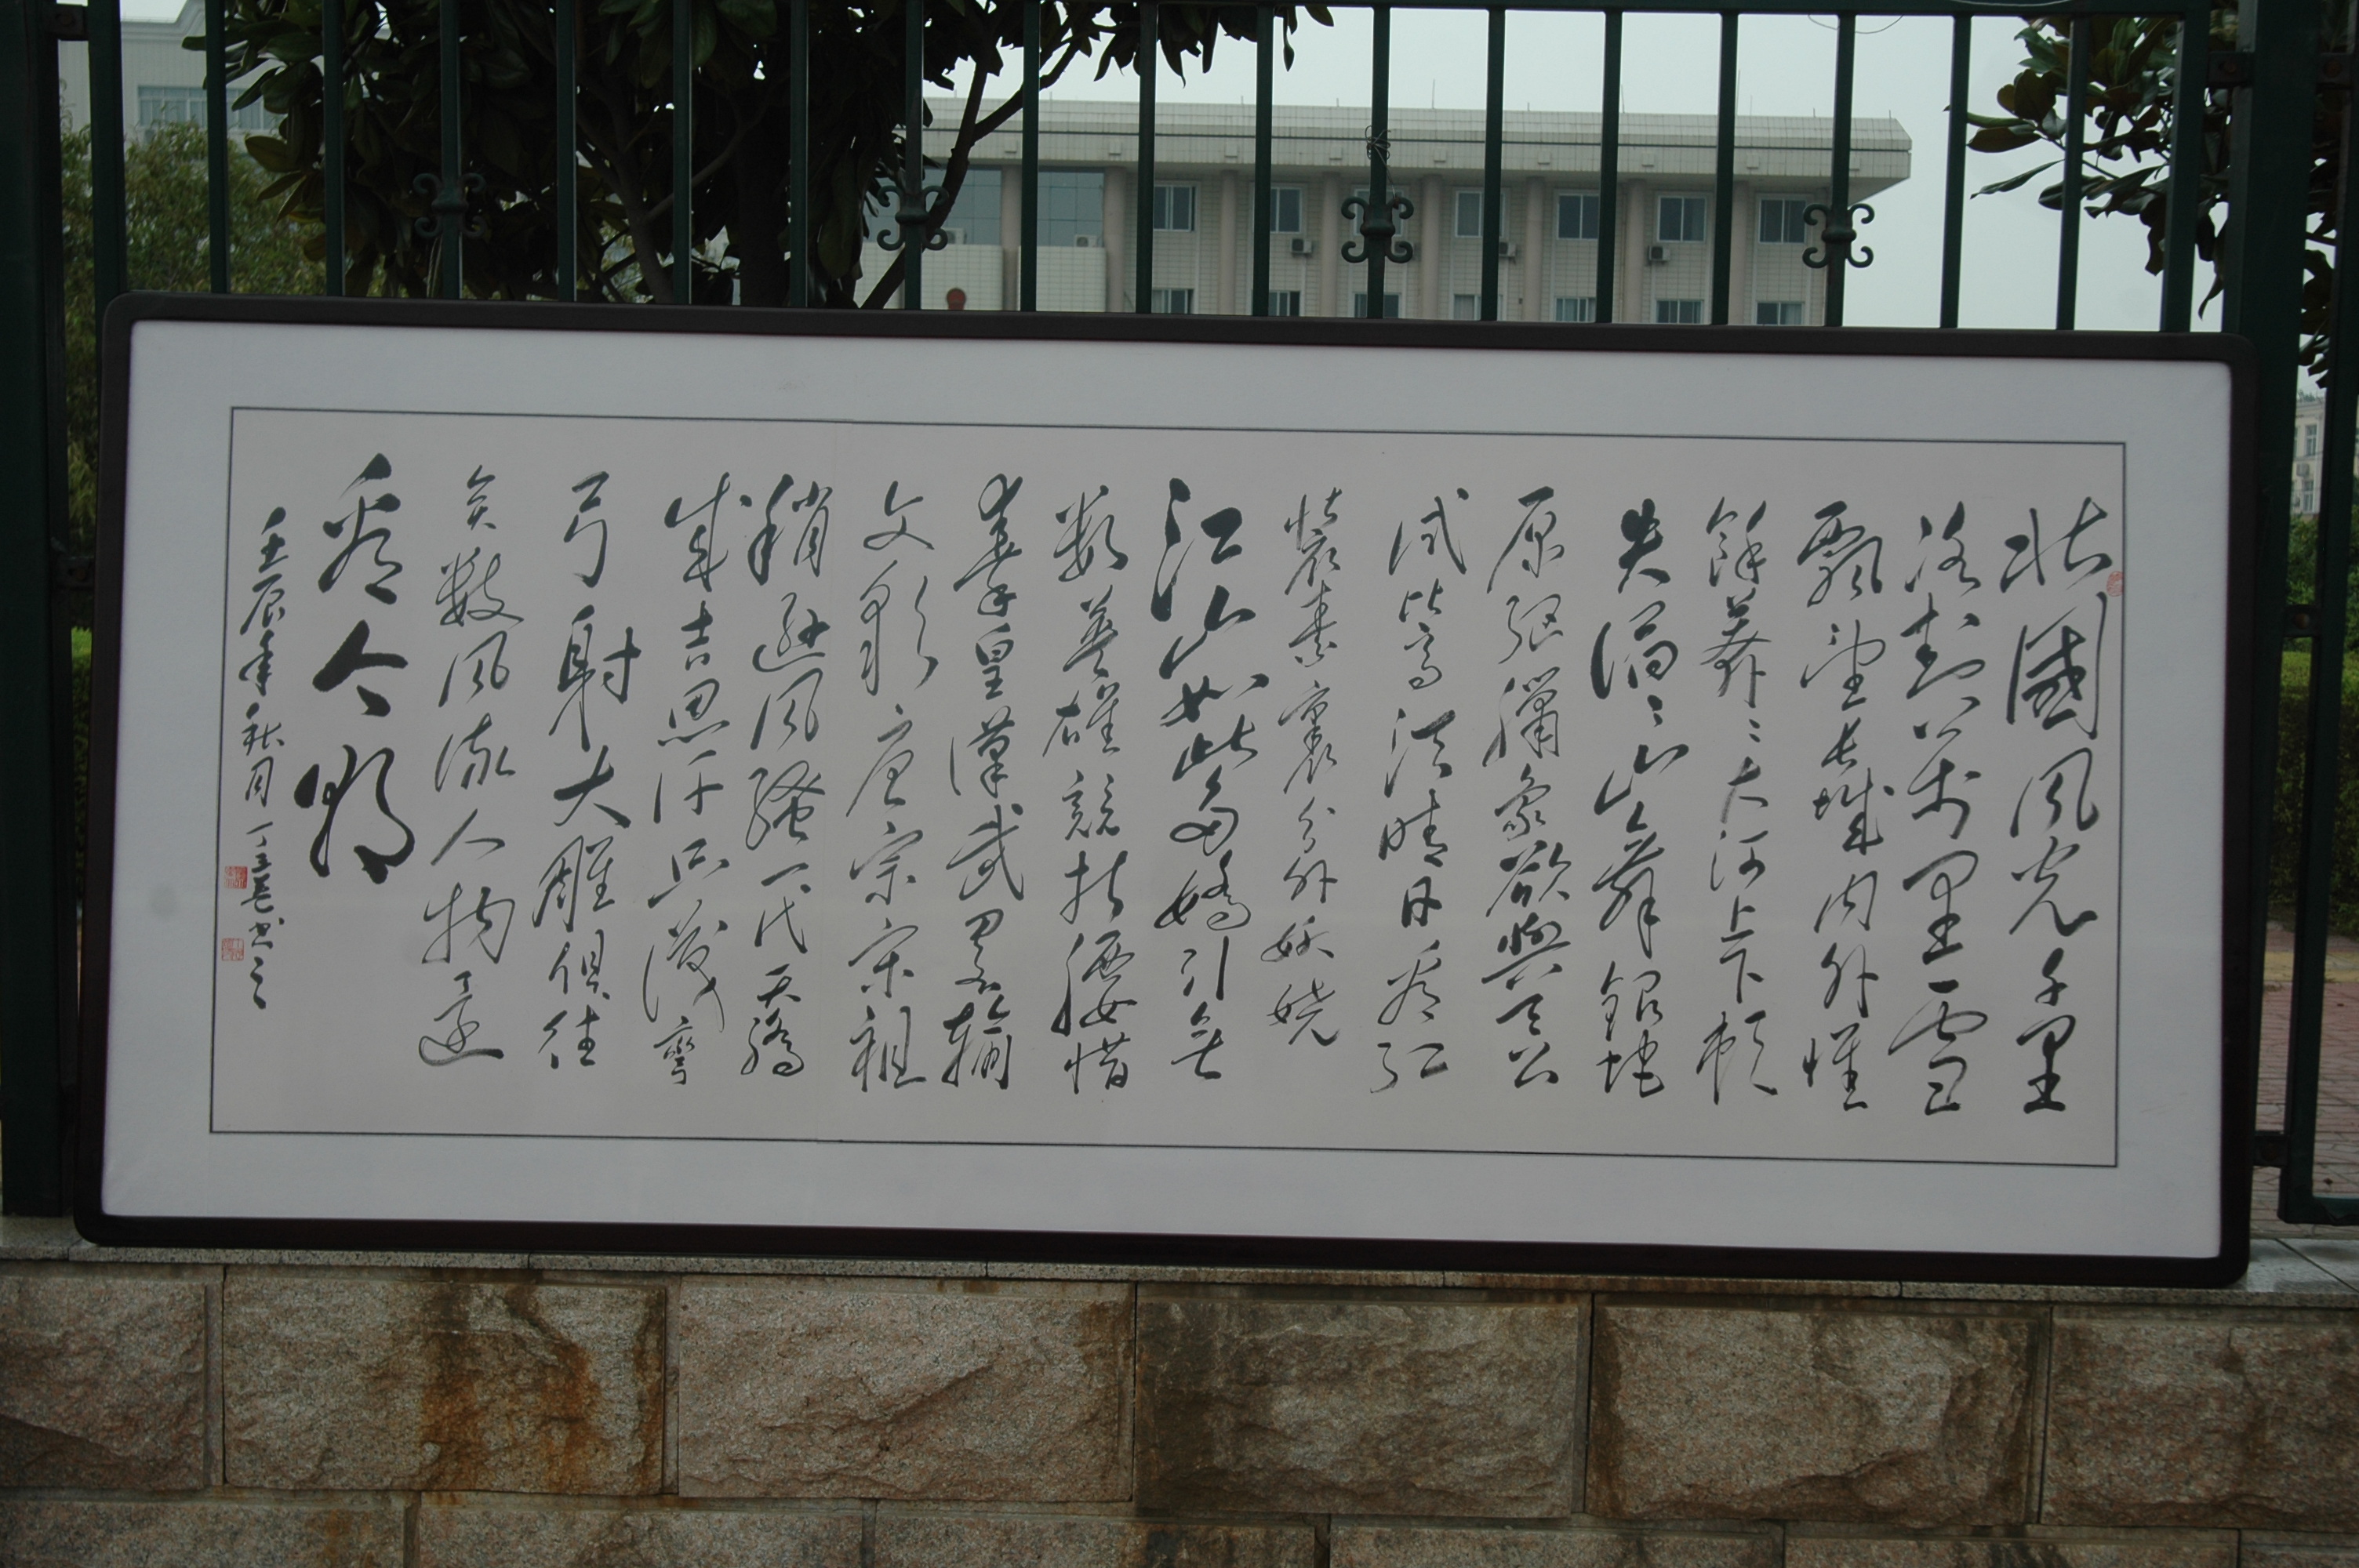 北國風光千里
冰封萬里雪
飄望長城内外惟
餘莽〻大河上下頓
失滔〻山舞銀蛇
原馳臘象欲與天公
試比高須晴日看紅
裝素裹分外妖嬈
江山如此多嬌引無
數英雄競折腰惜
秦皇漢武略輸
文彩唐宗宋祖
稍遜風騷一代天驕
成吉思汗只識彎
弓射大雕俱往
矣數風流人物還
看今朝
壬辰年秋月丁书之